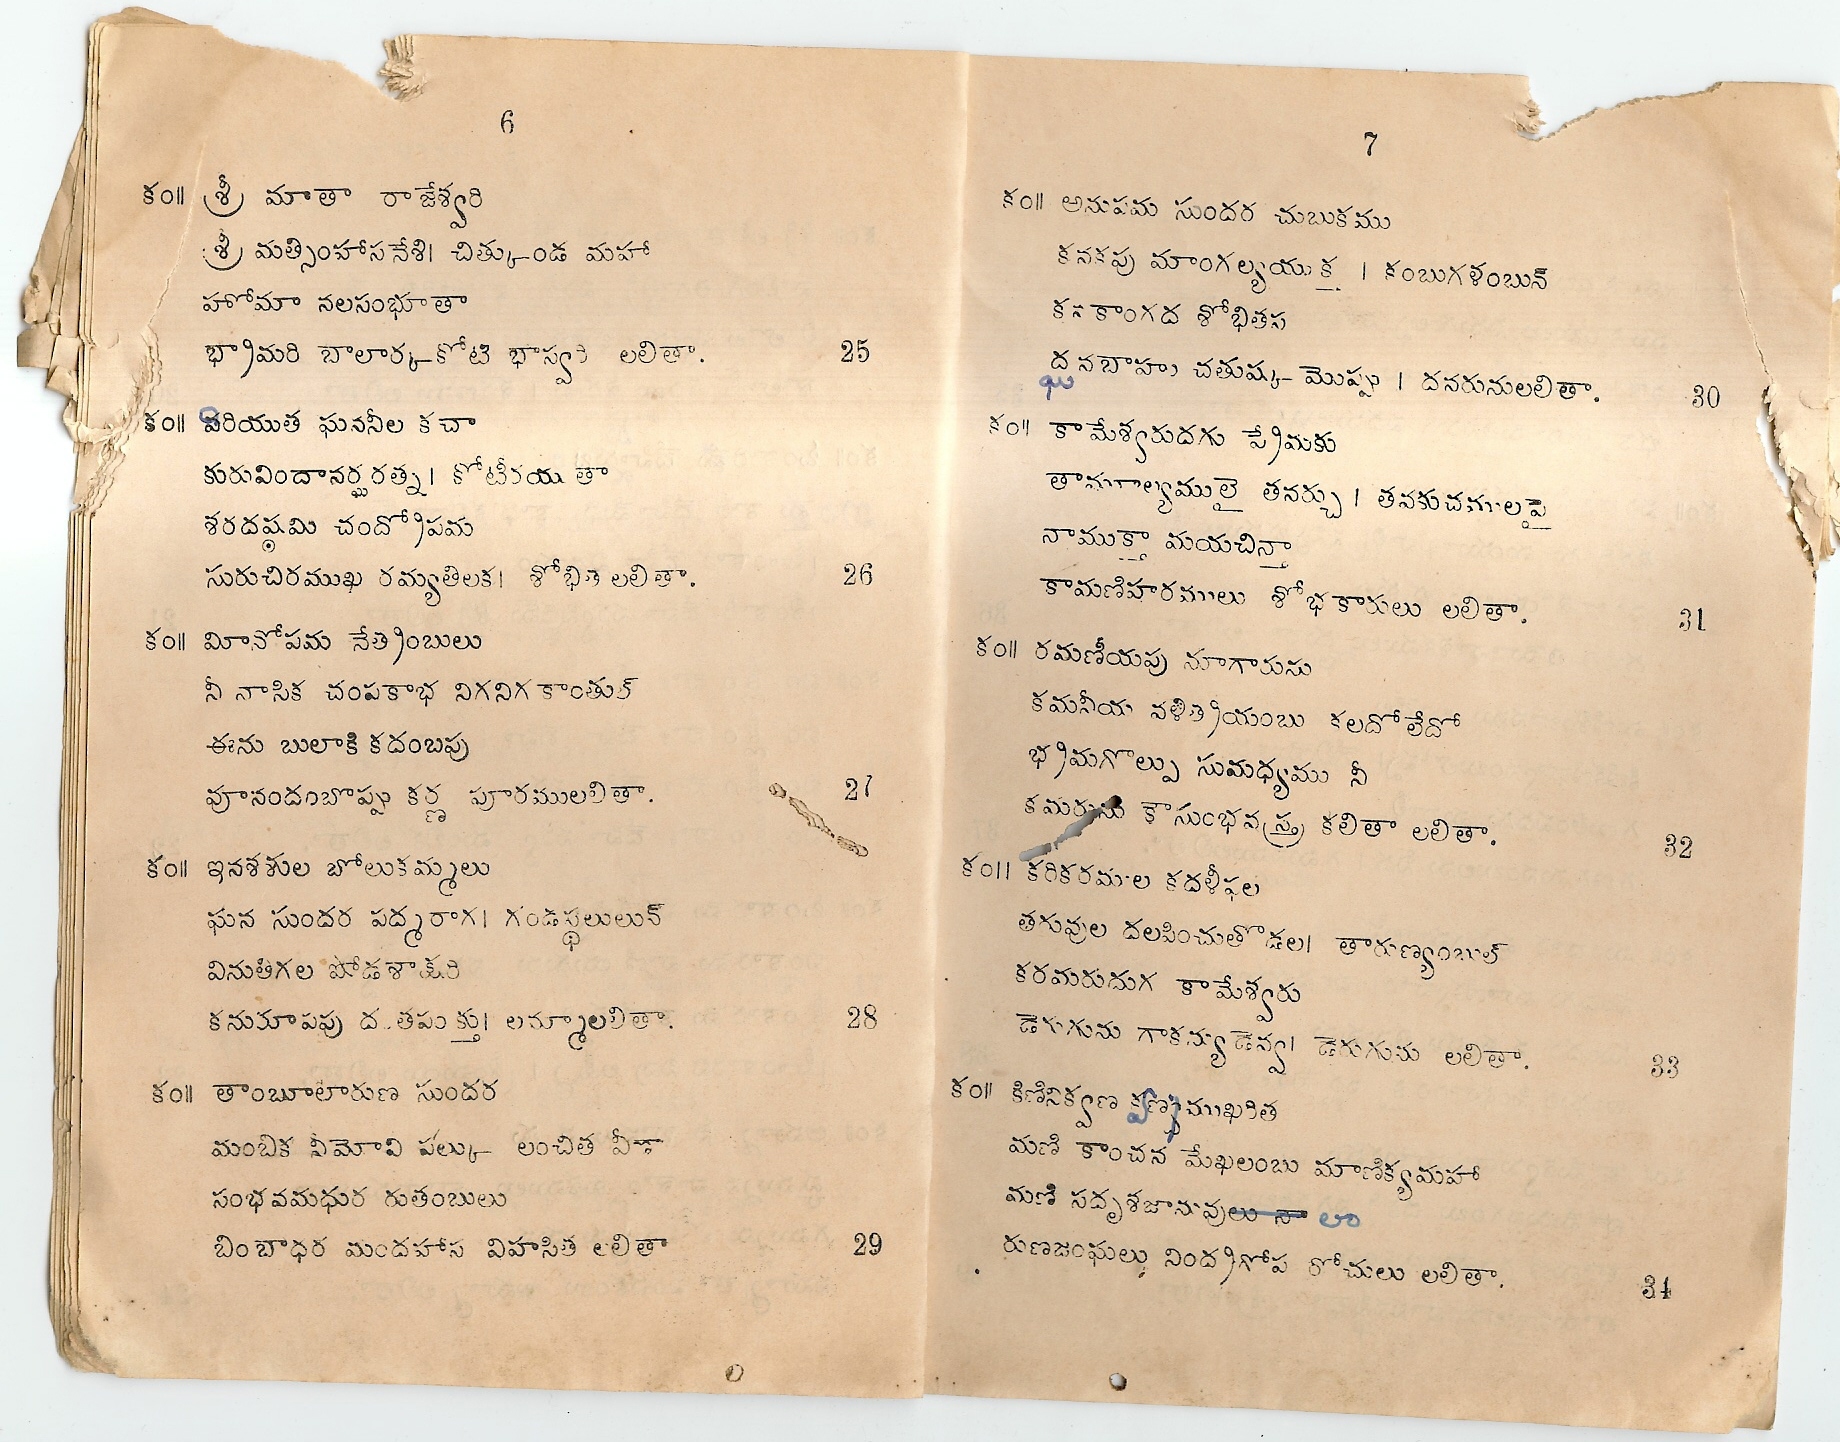 6
కం॥ శ్రీ మాతా రాజేశ్వరి
శ్రీ మత్సింహాసనేశి। చిత్కుండ మహా
హోమా నలసంభూతా
భ్రామరి బాలార్క కోటి లలితా. 25
కం॥ విరియుత ఘననీల కచా
కురువిందానర్ఘరత్న। కోటీరయుతా
శరదష్టమి చంద్రోపమ
సురుచిరముఖ రమ్యతిలక। శోభిత లలితా. 26
కం॥ మీనోపమ నేత్రింబులు
నీ నాసిక చంపకాభ నిగనిగ కాంతుల్
ఈను బులాకి కదంబపు
పూనందంబొప్పు కర్ణ పూరములలితా. 27
కం॥ ఇనశశుల బోలుకమ్మలు
ఘన సుందర పద్మరాగ। గండస్థలులున్
వినుతిగల షోడశాక్షరి
కనురూపపు లమ్మాలలితా. 28
కం॥ తాంబూలారుణ సుందర
మంబిక నీమోవి పల్కు లంచిత వీణా
సంభవమధుర రుతంబులు
బింబాధర మందహాస విహసిత లలితా 29
7
కం॥ అనుపమ సుందర చుబుకము
కనకపు మాంగల్యయుక్త । కంబుగళంబున్
కనకాంగద శోభితస
ద్ఘనబాహు చతుష్క మొప్పు । దనరునులలితా. 30
కం॥ కామేశ్వరుదగు ప్రేమకు
తామూల్యములై తనర్చు । తనకుచములపై
నాముక్తా మయచిన్తా
కామణిహరములు శోభకారులు లలితా. 31
కం॥ రమణీయపు నూగారును
కమనీయ వళిత్రియంబు కలదోలేదో
భ్రమగొల్పు సుమధ్యము నీ
కమరును కౌసుంభవస్త్ర కలితా లలితా. 32
కం॥ కరికరముల కదళీఫల
తగువుల దలపించుతొడల। తారుణ్యంబుల్
కరమరుదుగ కామేశ్వరు
డెరుగును గాకన్యుడెవ్వ। డెరుగును లలితా. 33
కం॥ కిణినిక్వణ ముఖరిత
మణి కాంచన మేఖలంబు మాణిక్యమహా
మణి సదృశజానువులు నా లా
రుణజంఘలు నింద్రగోప రోచులు లలితా. 34